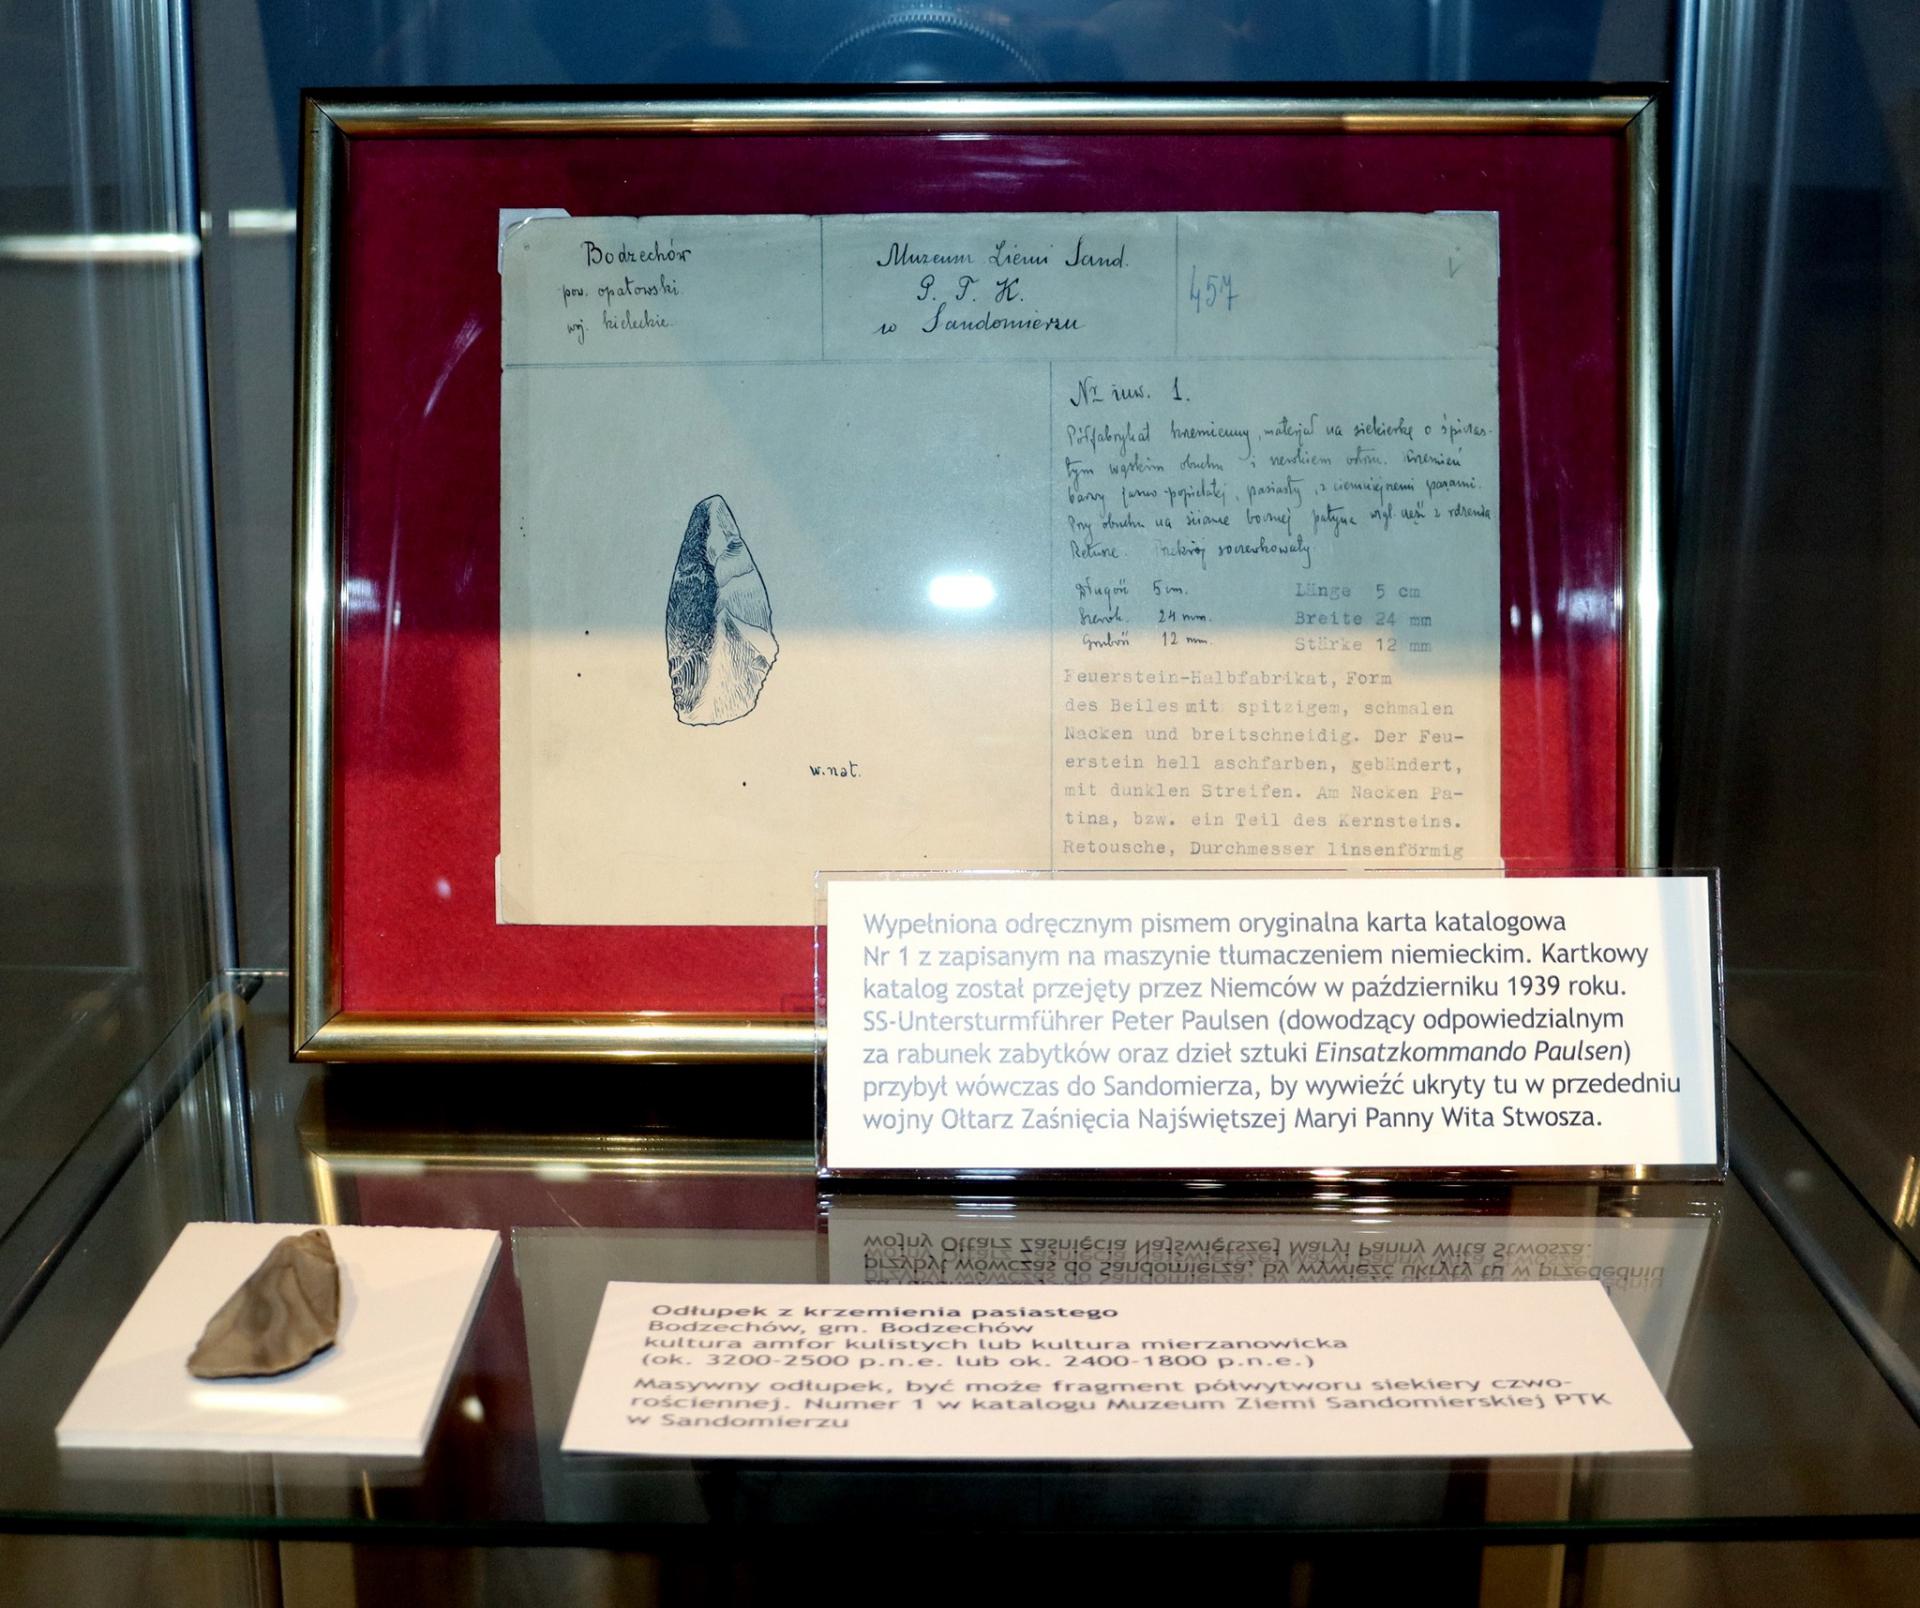 Bodzechów
pow. opatowski
woj. kieleckie.
Muzeum Ziemi Sand.
P. T. K.
w Sandomierzu
457
Nr inw. 1.
Półfabrykat krzemienny, materjał na siekierkę o śpicza-
tym wąskim obuchu i szerokiem ostrzu. Krzemień
barwy jasno-popielatej, pasiasty, z ciemniejszemi pasami.
Przy obuchu na ścianie bocznej patyna wzgl. część z rdzenia
Retusze. Przekrój soczewkowaty
Długość 5 cm.
Szerok. 24 mm.
Grubość 12 mm.
Länge 5 cm
Breite 24 mm
Stärke 12 mm
Feuerstein-Halbfabrikat, Form
des Beiles mit spitzigem, schmalen
Nacken und breitschneidig. Der Feu-
erstein hell aschfarben, gebändert,
mit dunklen Streifen. Am Nacken Pa-
tina, bzw. ein Teil des Kernsteins.
Retousche, Durchmesser linsenförmig
w. nat.
Wypełniona odręcznym pismem oryginalna karta katalogowa
Nr 1 z zapisanym na maszynie tłumaczeniem niemieckim. Kartkowy
katalog został przejęty przez Niemców w październiku 1939 roku.
SS-Untersturmführer Peter Paulsen (dowodzący odpowiedzialnym
za rabunek zabytków oraz dzieł sztuki Einsatzkommando Paulsen)
przybył wówczas do Sandomierza, by wywieźć ukryty tu w przededniu
wojny Ołtarz Zaśnięcia Najświętszej Maryi Panny Wita Stwosza.
Odłupek z krzemienia pasiastego
Bodzechów, gm. Bodzechów
kultura amfor kulistych lub kultura mierzanowicka
(ok. 3200-2500 p.n.e. lub ok. 2400-1800 p.n.e.)
Masywny odłupek, być może fragment półwytworu siekiery czwo-
rościennej. Numer 1 w katalogu Muzeum Ziemi Sandomierskiej PTK
w Sandomierzu